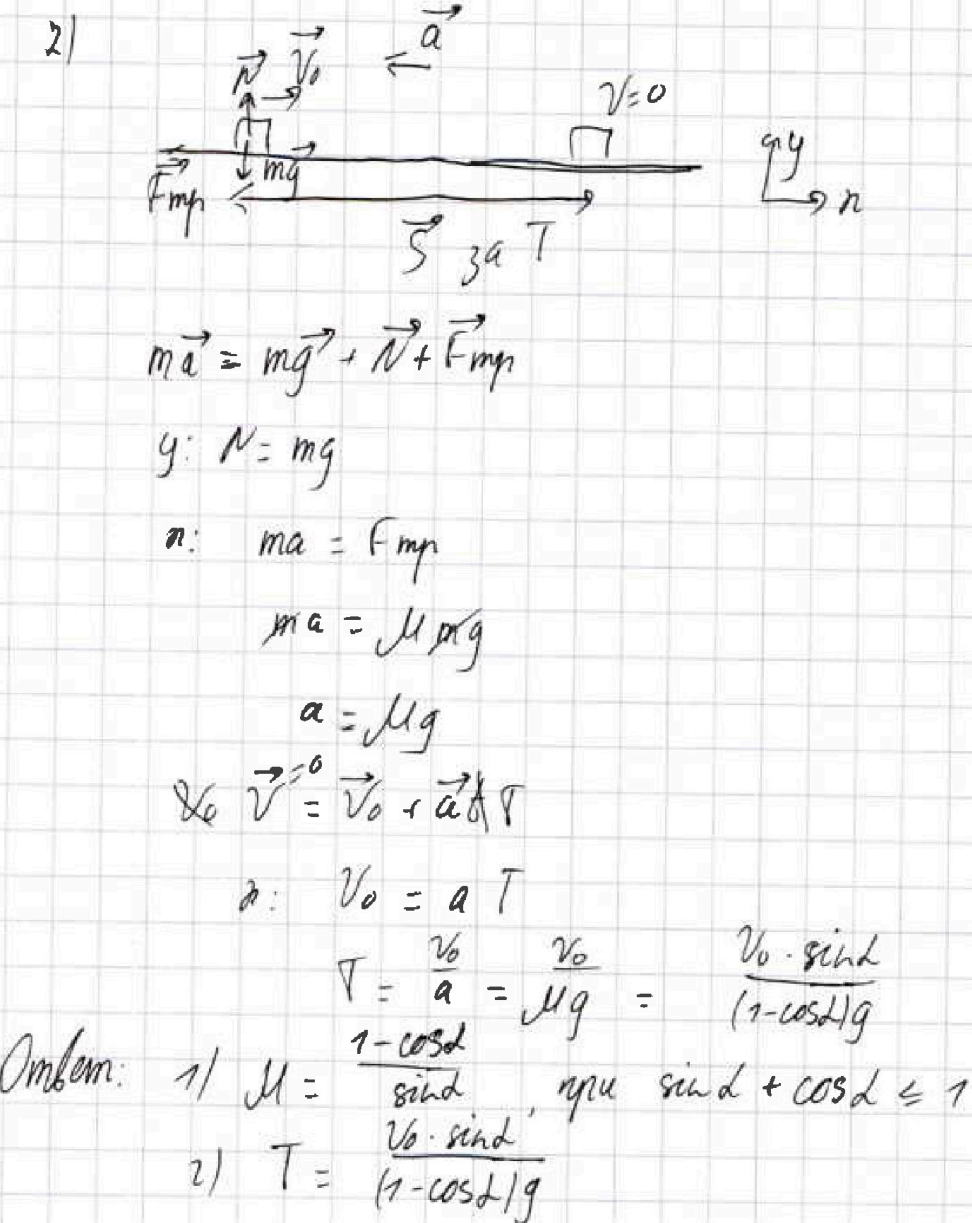 2)
N⃗ V⃗₀ a⃗
V=0
F⃗тр mg⃗ y x
S⃗ за T
ma⃗ = mg⃗ + N⃗ + F⃗тр
y: N = mg
x: ma = Fтр
ma = μmg
a = μg
V⃗ = 0 = V⃗₀ + a⃗ T
x: V₀ = a T
T = V₀/a = V₀/μg = V₀ · sinα/(1-cosα)g
Ответ: 1) μ = 1-cosα/sinα, при sinα + cosα ≤ 1
2) T = V₀ · sinα/(1-cosα)g